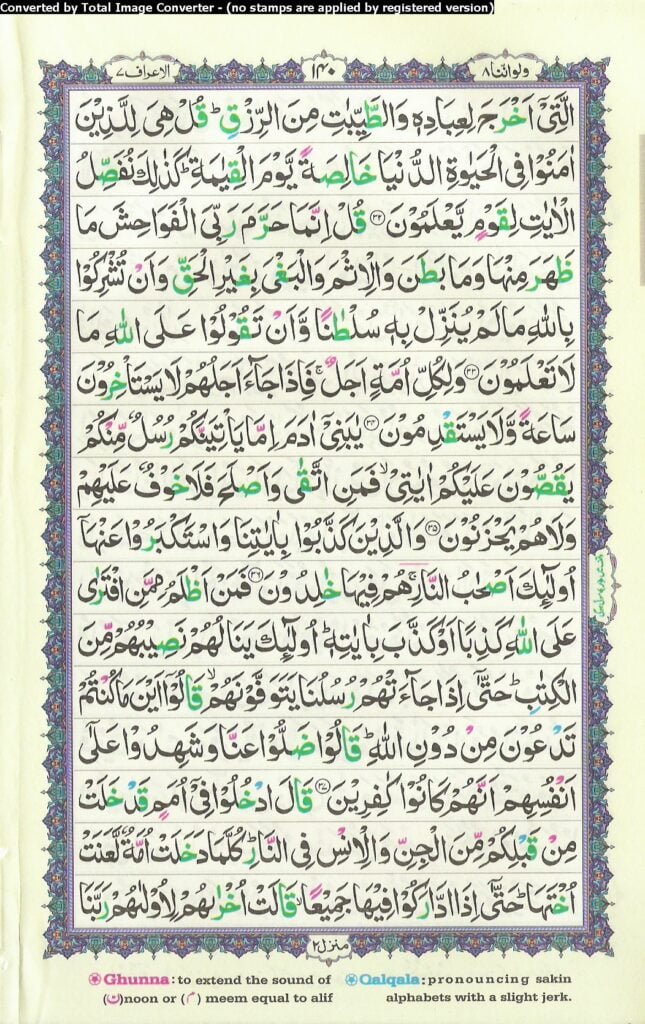 Converted by Total Image Converter - (no stamps are applied by registered version)
ولواننا ۸
۱۴۰
الاعراف ۷
الَّتِیْۤ اَخْرَجَ لِعِبَادِهٖ وَالطَّیِّبٰتِ مِنَ الرِّزْقِ ؕ قُلْ هِیَ لِلَّذِیْنَ
اٰمَنُوْا فِی الْحَیٰوةِ الدُّنْیَا خَالِصَةً یَّوْمَ الْقِیٰمَةِ ؕ كَذٰلِكَ نُفَصِّلُ
الْاٰیٰتِ لِقَوْمٍ یَّعْلَمُوْنَ ۳۲ قُلْ اِنَّمَا حَرَّمَ رَبِّیَ الْفَوَاحِشَ مَا
ظَهَرَ مِنْهَا وَمَا بَطَنَ وَالْاِثْمَ وَالْبَغْیَ بِغَیْرِ الْحَقِّ وَاَنْ تُشْرِكُوْا
بِاللّٰهِ مَا لَمْ یُنَزِّلْ بِهٖ سُلْطٰنًا وَّاَنْ تَقُوْلُوْا عَلَی اللّٰهِ مَا
لَا تَعْلَمُوْنَ ۳۳ وَلِكُلِّ اُمَّةٍ اَجَلٌ ۚ فَاِذَا جَآءَ اَجَلُهُمْ لَا یَسْتَاْخِرُوْنَ
سَاعَةً وَّلَا یَسْتَقْدِمُوْنَ ۳۴ یٰبَنِیْۤ اٰدَمَ اِمَّا یَاْتِیَنَّكُمْ رُسُلٌ مِّنْكُمْ
یَقُصُّوْنَ عَلَیْكُمْ اٰیٰتِیْ ۙ فَمَنِ اتَّقٰی وَاَصْلَحَ فَلَا خَوْفٌ عَلَیْهِمْ
وَلَا هُمْ یَحْزَنُوْنَ ۳۵ وَالَّذِیْنَ كَذَّبُوْا بِاٰیٰتِنَا وَاسْتَكْبَرُوْا عَنْهَاۤ
اُولٰٓئِكَ اَصْحٰبُ النَّارِ ۚ هُمْ فِیْهَا خٰلِدُوْنَ ۳۶ فَمَنْ اَظْلَمُ مِمَّنِ افْتَرٰی
عَلَی اللّٰهِ كَذِبًا اَوْ كَذَّبَ بِاٰیٰتِهٖ ؕ اُولٰٓئِكَ یَنَالُهُمْ نَصِیْبُهُمْ مِّنَ
الْكِتٰبِ ؕ حَتّٰۤی اِذَا جَآءَتْهُمْ رُسُلُنَا یَتَوَفَّوْنَهُمْ ۙ قَالُوْۤا اَیْنَ مَا كُنْتُمْ
تَدْعُوْنَ مِنْ دُوْنِ اللّٰهِ ؕ قَالُوْا ضَلُّوْا عَنَّا وَشَهِدُوْا عَلٰۤی
اَنْفُسِهِمْ اَنَّهُمْ كَانُوْا كٰفِرِیْنَ ۳۷ قَالَ ادْخُلُوْا فِیْۤ اُمَمٍ قَدْ خَلَتْ
مِنْ قَبْلِكُمْ مِّنَ الْجِنِّ وَالْاِنْسِ فِی النَّارِ ؕ كُلَّمَا دَخَلَتْ اُمَّةٌ لَّعَنَتْ
اُخْتَهَا ؕ حَتّٰۤی اِذَا ادَّارَكُوْا فِیْهَا جَمِیْعًا ۙ قَالَتْ اُخْرٰىهُمْ لِاُوْلٰىهُمْ رَبَّنَا
منزل ۲
Ghunna: to extend the sound of (ن) noon or (م) meem equal to alif
Qalqala: pronouncing sakin alphabets with a slight jerk.